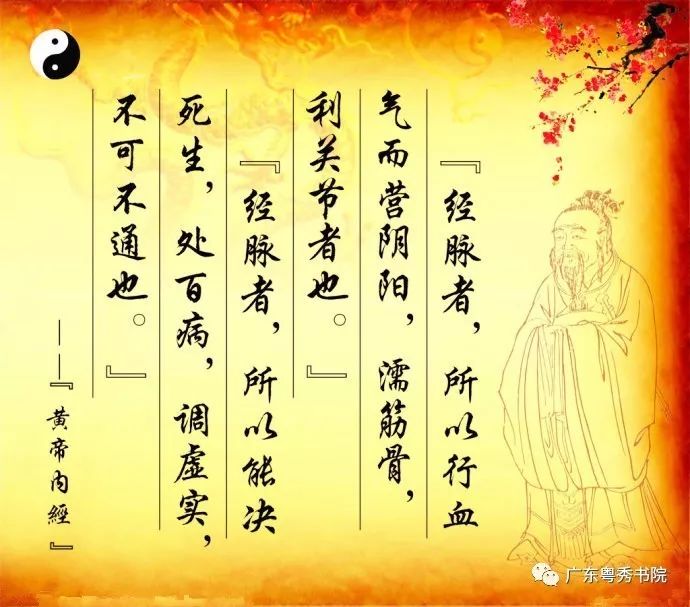 『经脉者，所以行血
气而营阴阳，濡筋骨，
利关节者也。』
『经脉者，所以能决
死生，处百病，调虚实，
不可不通也。』
——『黄帝内經』
广东粤秀书院